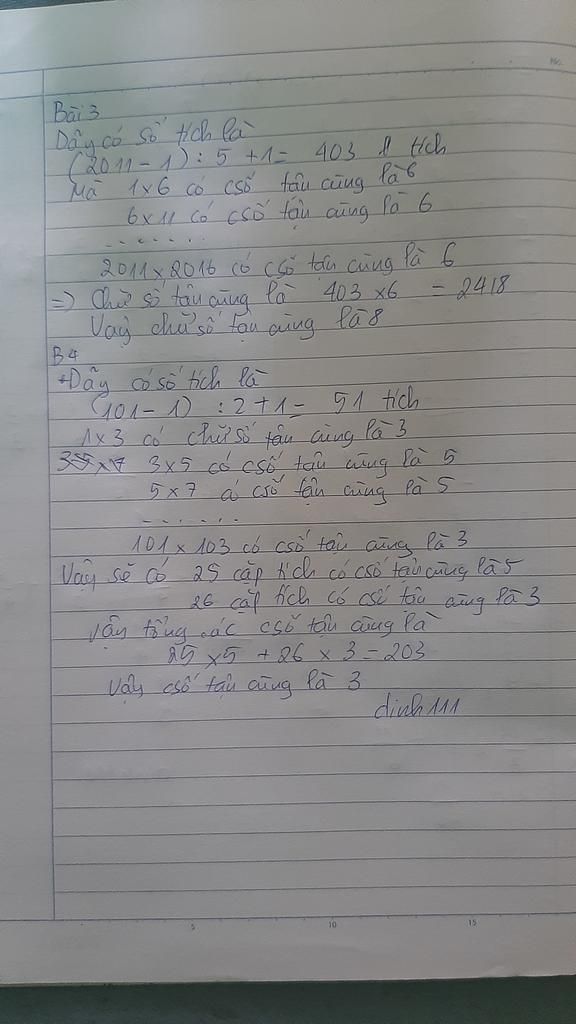 No.
Bài 3
Dãy có số tích là
(2011 - 1) : 5 + 1 = 403 tích
Mà 1 x 6 có csố tận cùng là 6
6 x 11 có csố tận cùng là 6
.......
2011 x 2016 có csố tận cùng là 6
=> Chữ số tận cùng là 403 x 6 = 2418
Vậy chữ số tận cùng là 8
B4
+ Dãy có số tích là
(101 - 1) : 2 + 1 = 51 tích
1 x 3 có chữ số tận cùng là 3
3 x 5 có csố tận cùng là 5
5 x 7 có csố tận cùng là 5
.......
101 x 103 có csố tận cùng là 3
Vậy sẽ có 25 cặp tích có csố tận cùng là 5
26 cặp tích có csố tận cùng là 3
Vậy tổng các csố tận cùng là
25 x 5 + 26 x 3 = 203
Vậy csố tận cùng là 3
dinh 111
5 10 15